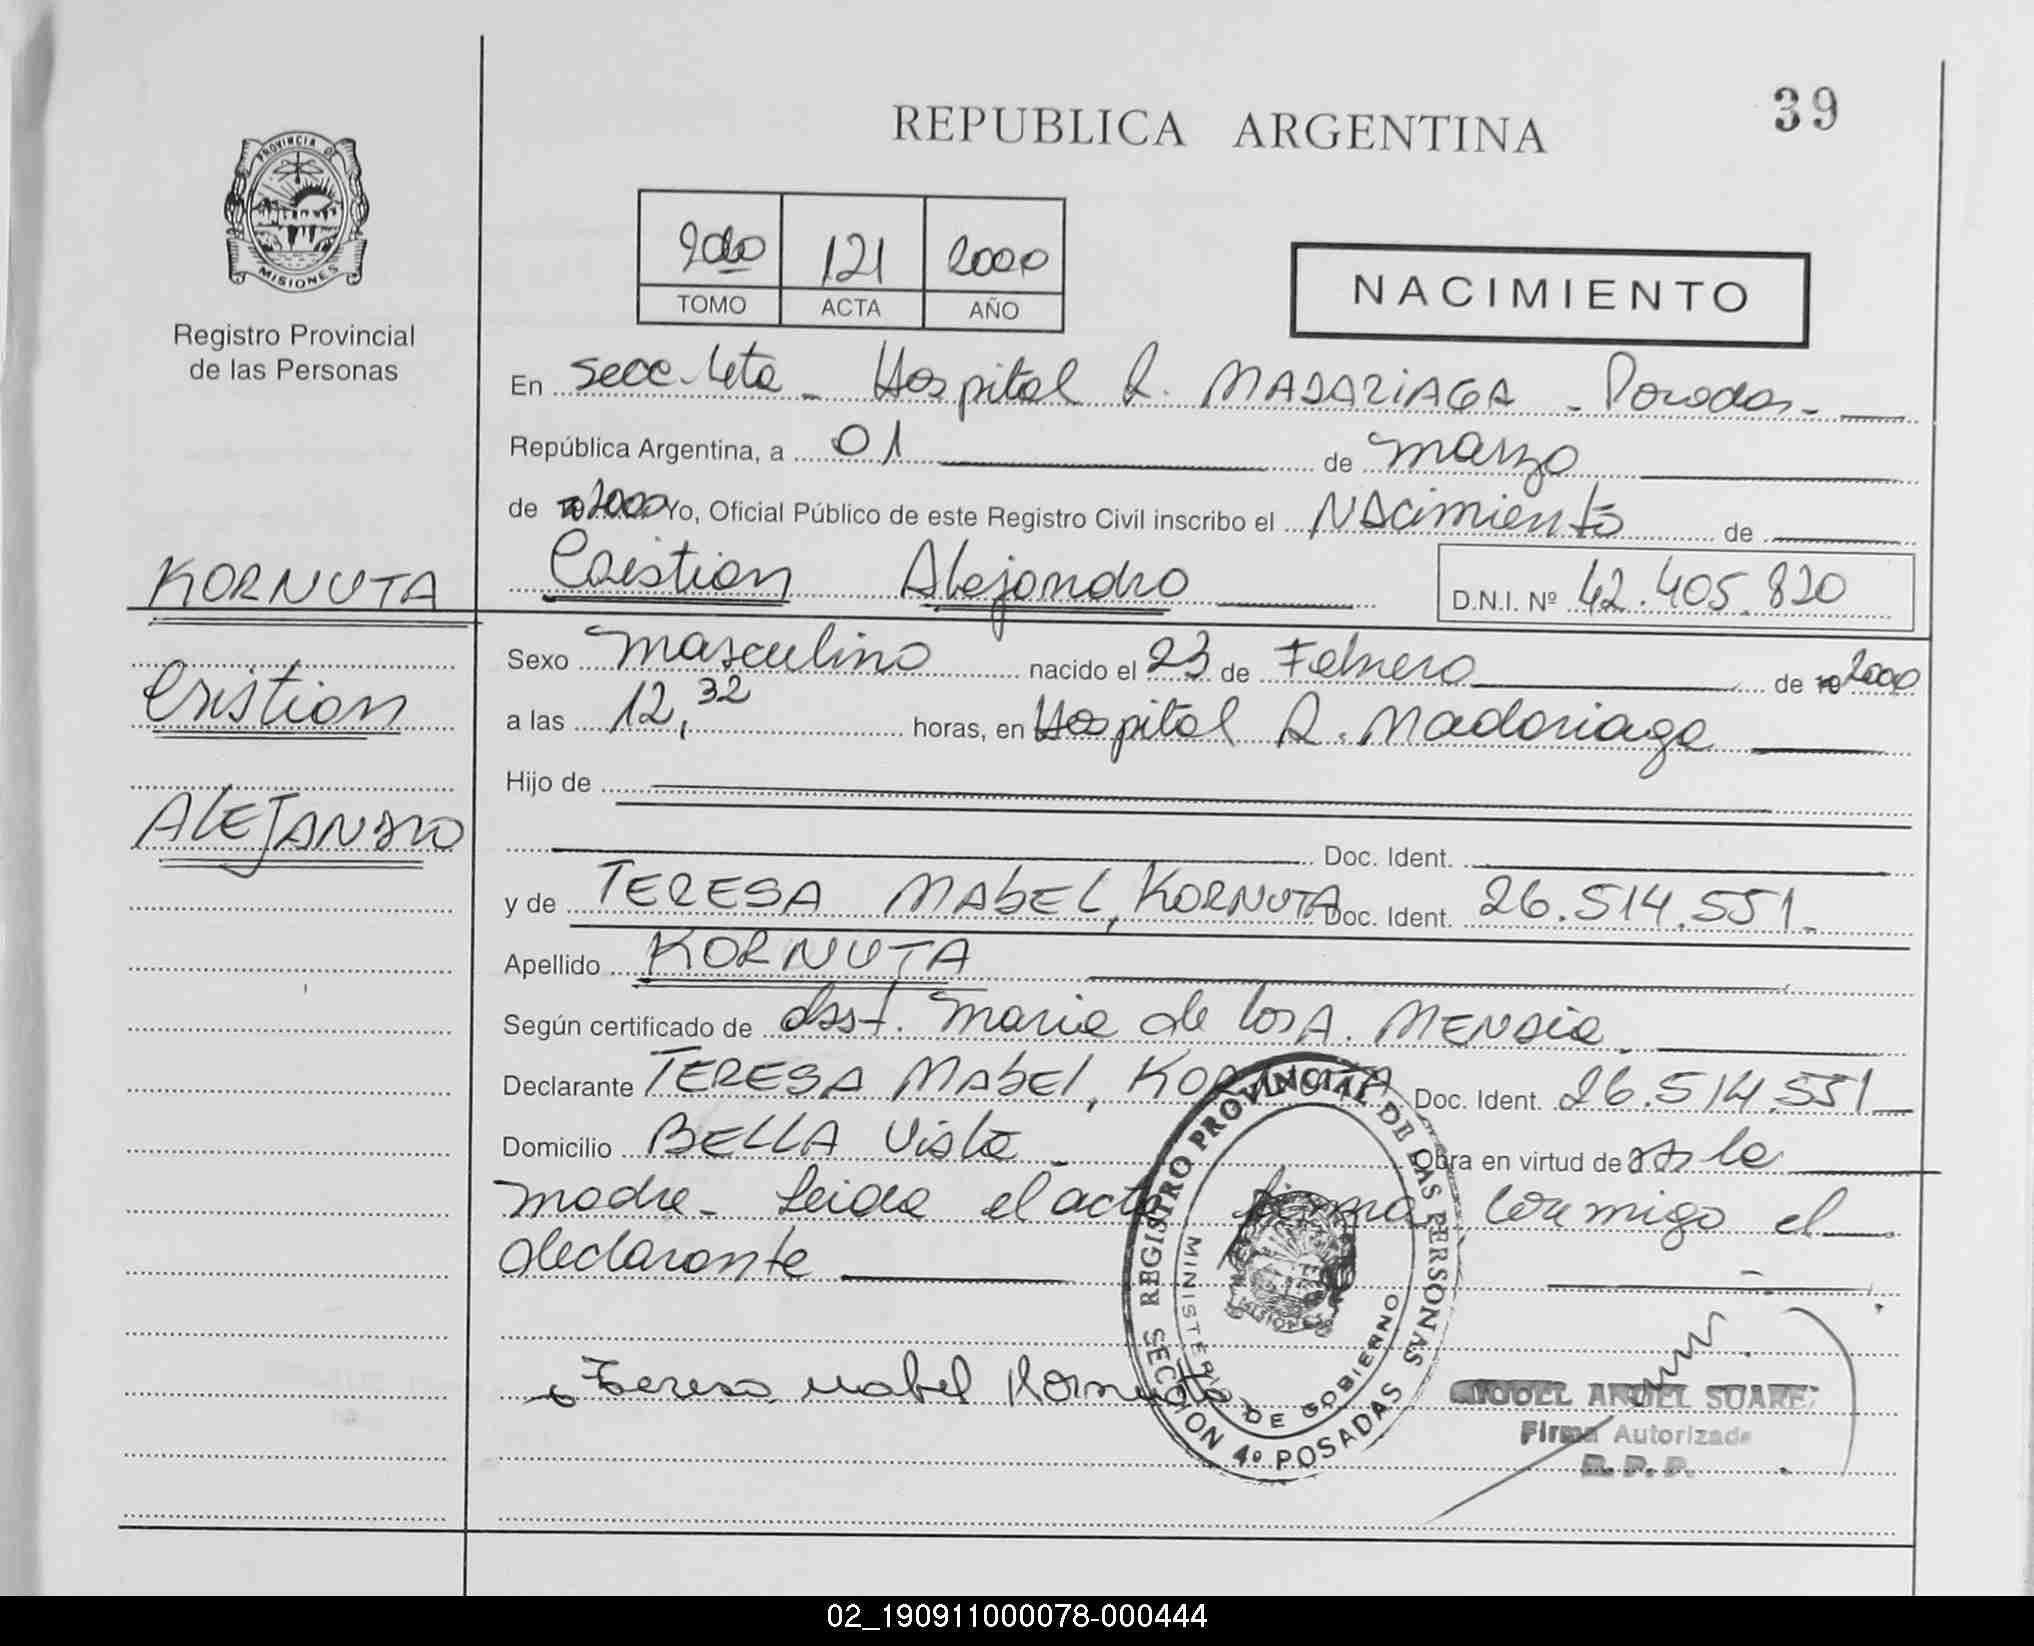 39
REPUBLICA ARGENTINA
PROVINCIA DE
MISIONES
Registro Provincial
de las Personas
2000 121 2000
TOMO ACTA AÑO
NACIMIENTO
En Secc. 4ta - Hospital R. MADARIAGA - Posadas -
República Argentina, a 01 de marzo
de 2000 Yo, Oficial Público de este Registro Civil inscribo el NAcimiento de
Cristian Alejandro D.N.I. Nº 42.405.820
KORNUTA
Cristian
ALEJANDRO
Sexo masculino nacido el 23 de Febrero de 2000
a las 12,32 horas, en Hospital R. Madariaga
Hijo de
Doc. Ident.
y de TERESA MAbEL, KORNUTA Doc. Ident. 26.514.551.
Apellido KORNUTA
Según certificado de obst. Maria de los A. MENDIE
Declarante TERESA MAbEl, KORNUTA Doc. Ident. 26.514.551
Domicilio BELLA Vista - Obra en virtud de ser la
madre - Leida el acta firma conmigo el
declarante
Teresa mabel Kornuta
REGISTRO PROVINCIAL DE LAS PERSONAS
SECCION 4º POSADAS
MINISTERIO DE GOBIERNO
MISIONES
MIGUEL ANGEL SUAREZ
Firma Autorizada
R. P. P.
02_190911000078-000444